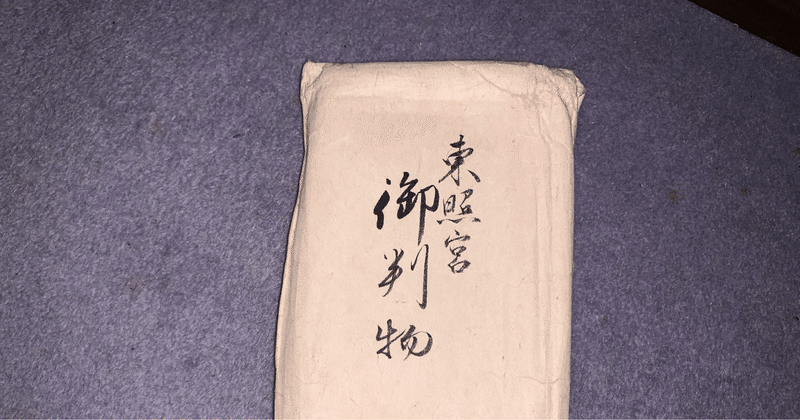 東照宮
御判物